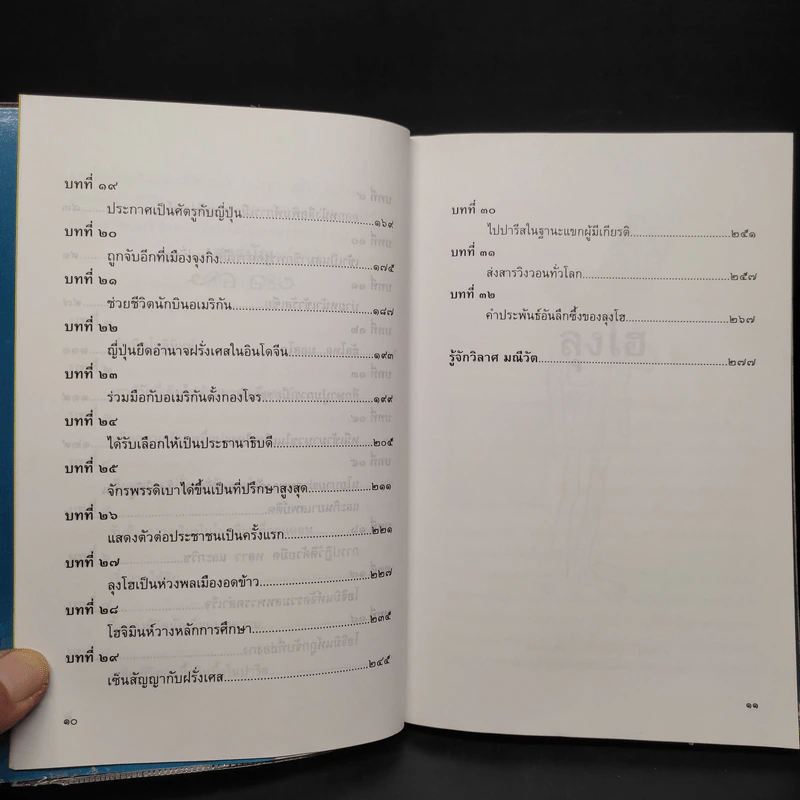 บทที่ ๑๙
ประกาศเป็นศัตรูกับญี่ปุ่น..............................๑๖๙
บทที่ ๒๐
ถูกจับอีกที่เมืองจุงกิง..............................๑๗๕
บทที่ ๒๑
ช่วยชีวิตนักบินอเมริกัน..............................๑๘๗
บทที่ ๒๒
ญี่ปุ่นยึดอำนาจฝรั่งเศสในอินโดจีน....................๑๙๓
บทที่ ๒๓
ร่วมมือกับอเมริกันตั้งกองโจร.........................๑๙๙
บทที่ ๒๔
ได้รับเลือกให้เป็นประธานาธิบดี.......................๒๐๕
บทที่ ๒๕
จักรพรรดิเบาได๋ขึ้นเป็นที่ปรึกษาสูงสุด...............๒๑๑
บทที่ ๒๖
แสดงตัวต่อประชาชนเป็นครั้งแรก.....................๒๒๑
บทที่ ๒๗
ลุงโฮเป็นห่วงพลเมืองอดข้าว.........................๒๒๗
บทที่ ๒๘
โฮจิมินห์วางหลักการศึกษา...........................๒๓๕
บทที่ ๒๙
เซ็นสัญญากับฝรั่งเศส...............................๒๔๕
๑๐
บทที่ ๓๐
ไปปารีสในฐานะแขกผู้มีเกียรติ.......................๒๕๑
บทที่ ๓๑
ส่งสารวิงวอนทั่วโลก................................๒๕๗
บทที่ ๓๒
คำประพันธ์อันลึกซึ้งของลุงโฮ.......................๒๖๗
รู้จักวิลาศ มณีวัต..................................๒๗๗
๑๑